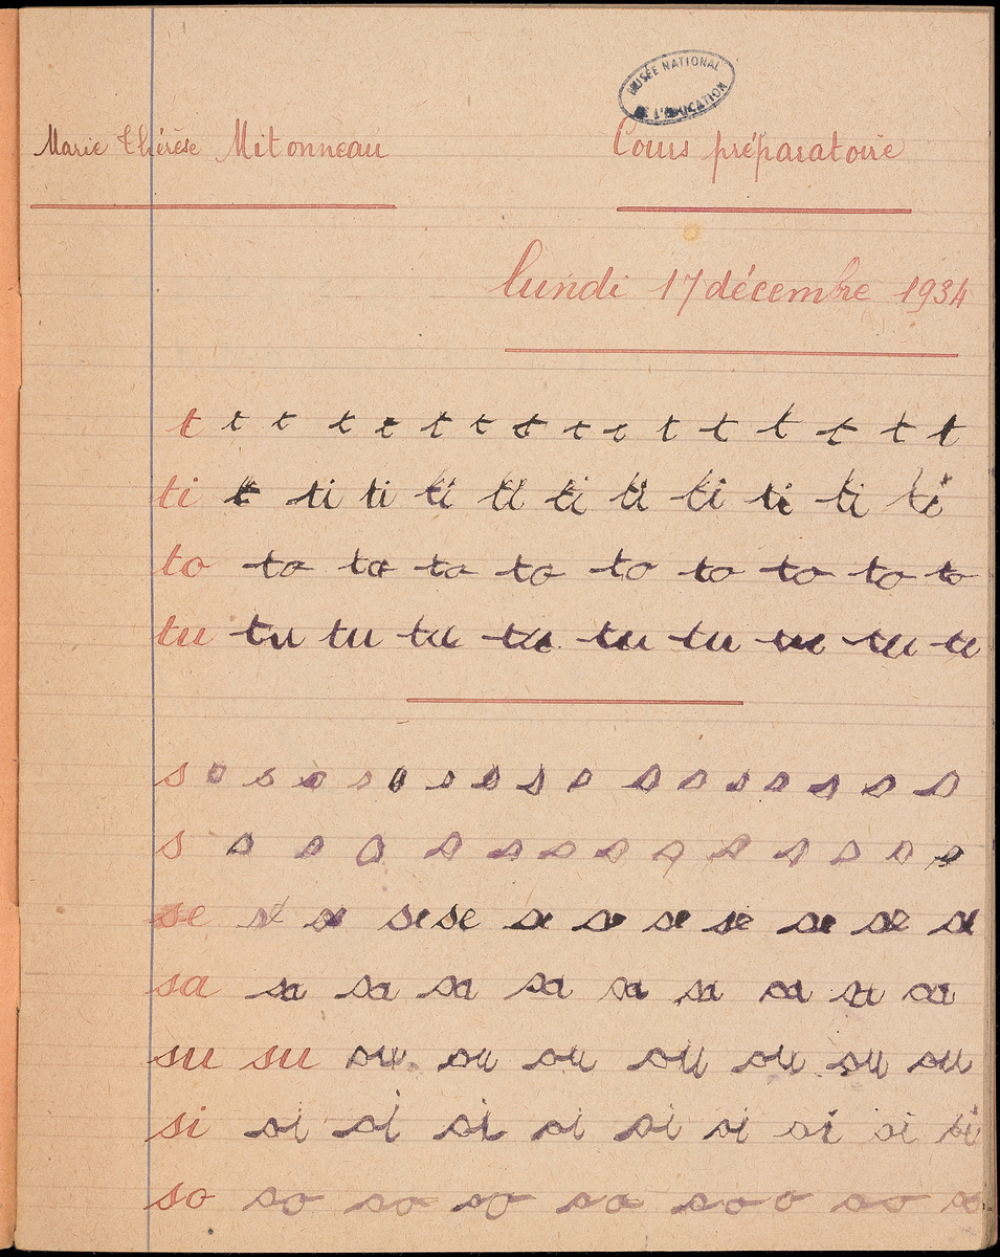 MUSÉE NATIONAL DE L'ÉDUCATION
Marie Thérèse Mitonneau Cours préparatoire
lundi 17 décembre 1934
t t t t t t t t t t t t t t t t
ti t ti ti ti ti ti ti ti ti ti ti
to to to to to to to to to to
tu tu tu tu tu tu tu tu tu tu
s s s s s s s s s s s s s s s s s
s s s s s s s s s s s s s s
se se se se se se se se se se se se
sa sa sa sa sa sa sa sa sa sa
su su su su su su su su su
si si si si si si si si si si
so so so so so so o so so